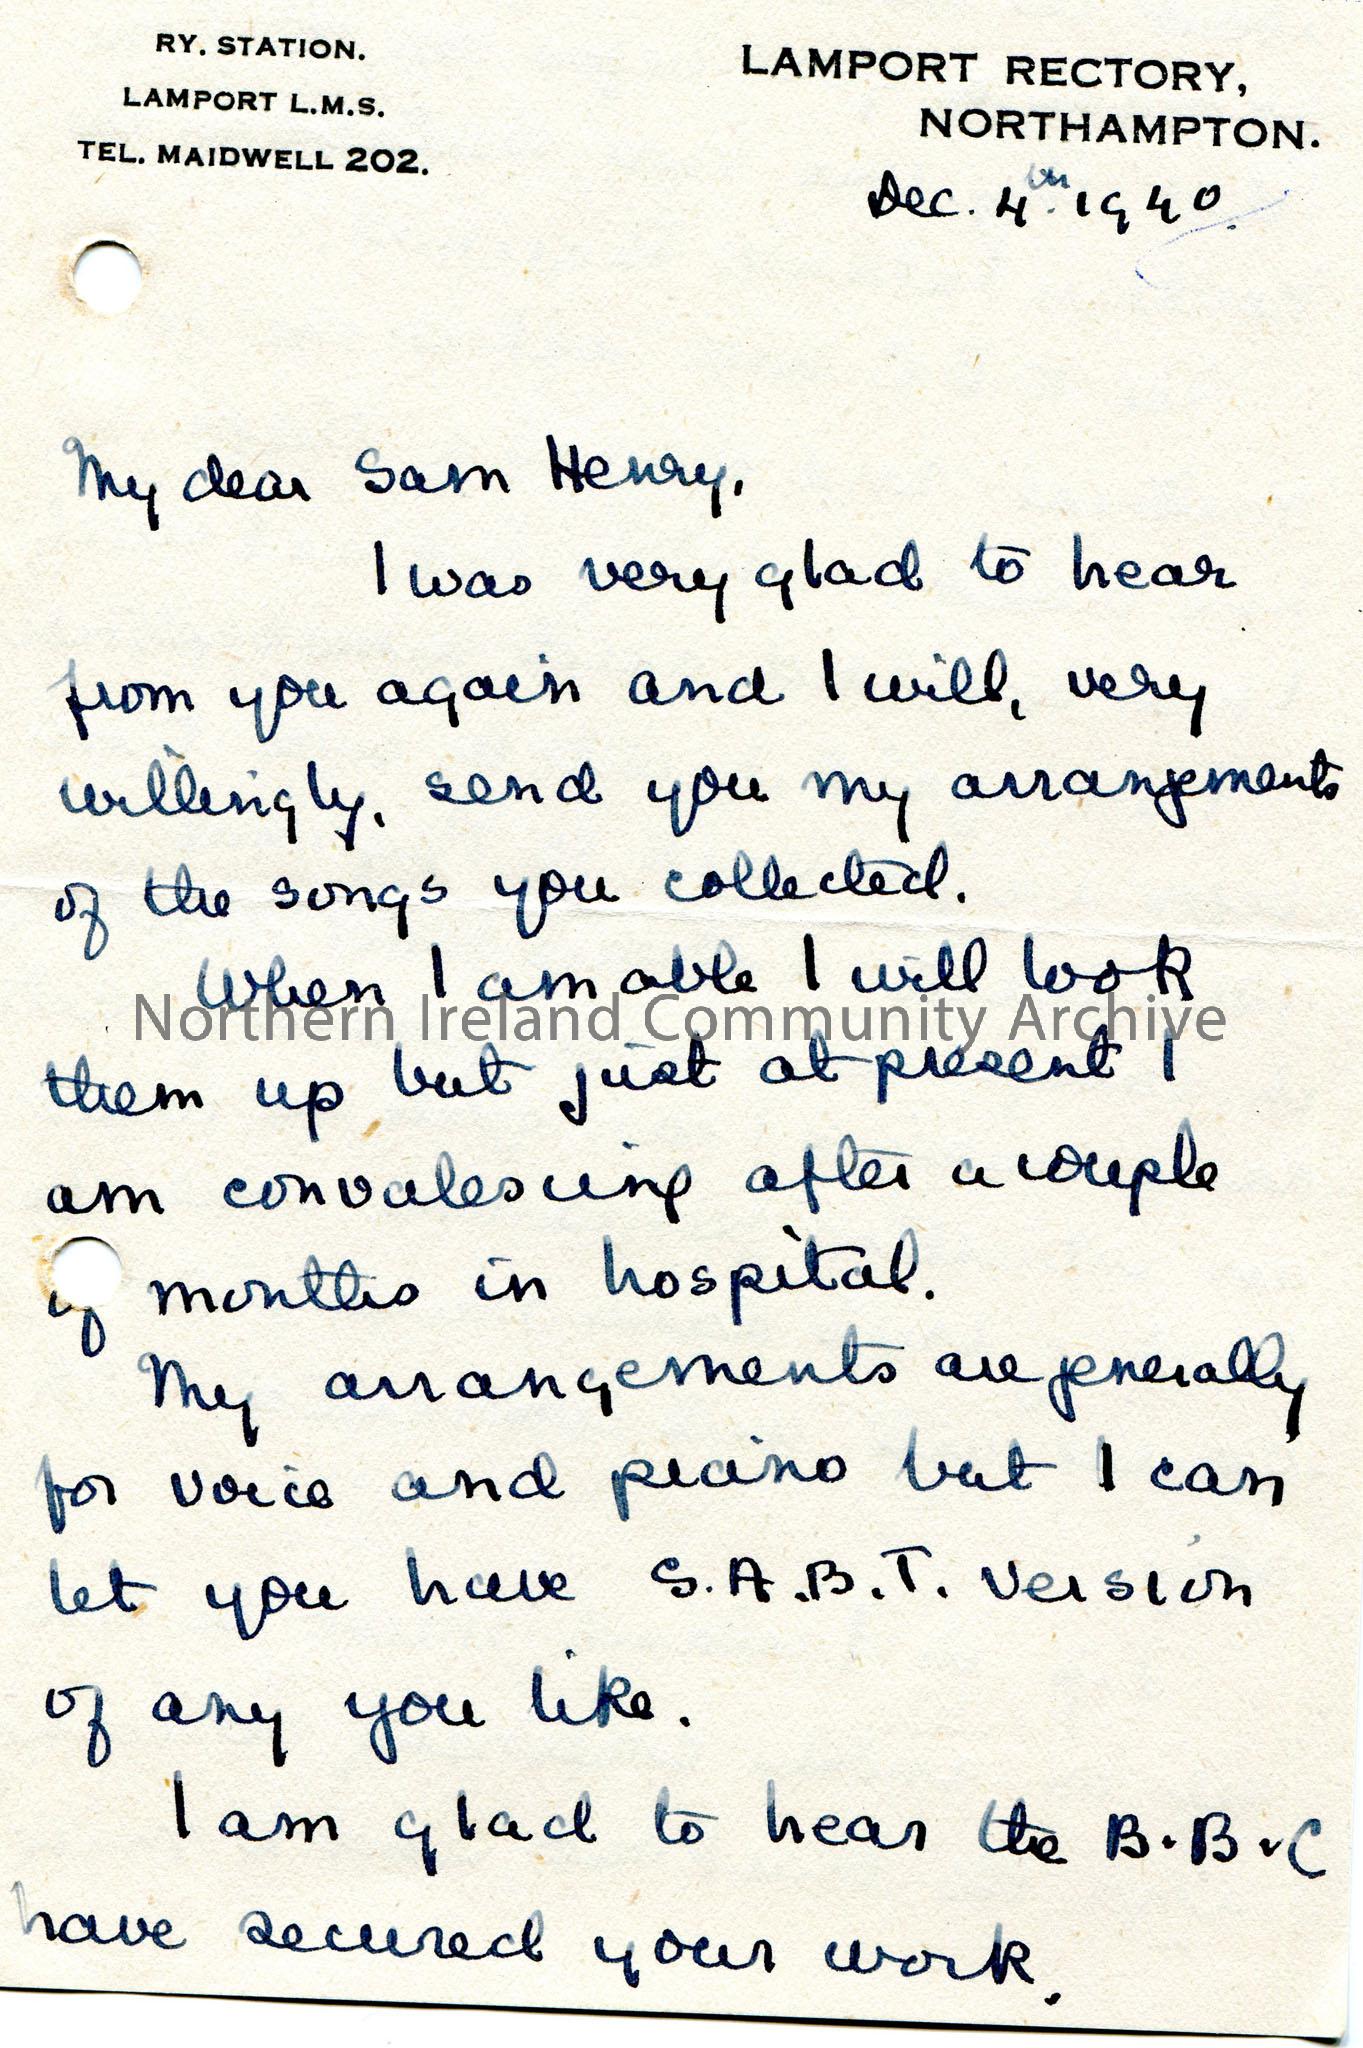 RY. STATION.
LAMPORT L.M.S.
TEL. MAIDWELL 202.
LAMPORT RECTORY,
NORTHAMPTON.
Dec. 4th. 1940.
My dear Sam Henry,
I was very glad to hear
from you again and I will, very
willingly, send you my arrangements
of the songs you collected.
When I am able I will look
Northern Ireland Community Archive
them up but just at present I
am convalescing after a couple
of months in hospital.
My arrangements are generally
for voice and piano but I can
let you have S.A.B.T. version
of any you like.
I am glad to hear the B.B.C
have secured your work.